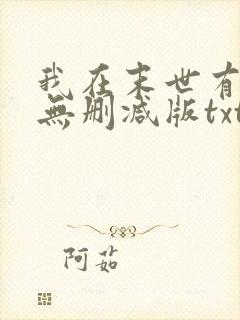 我在末世有
無删减版txt
阿茹